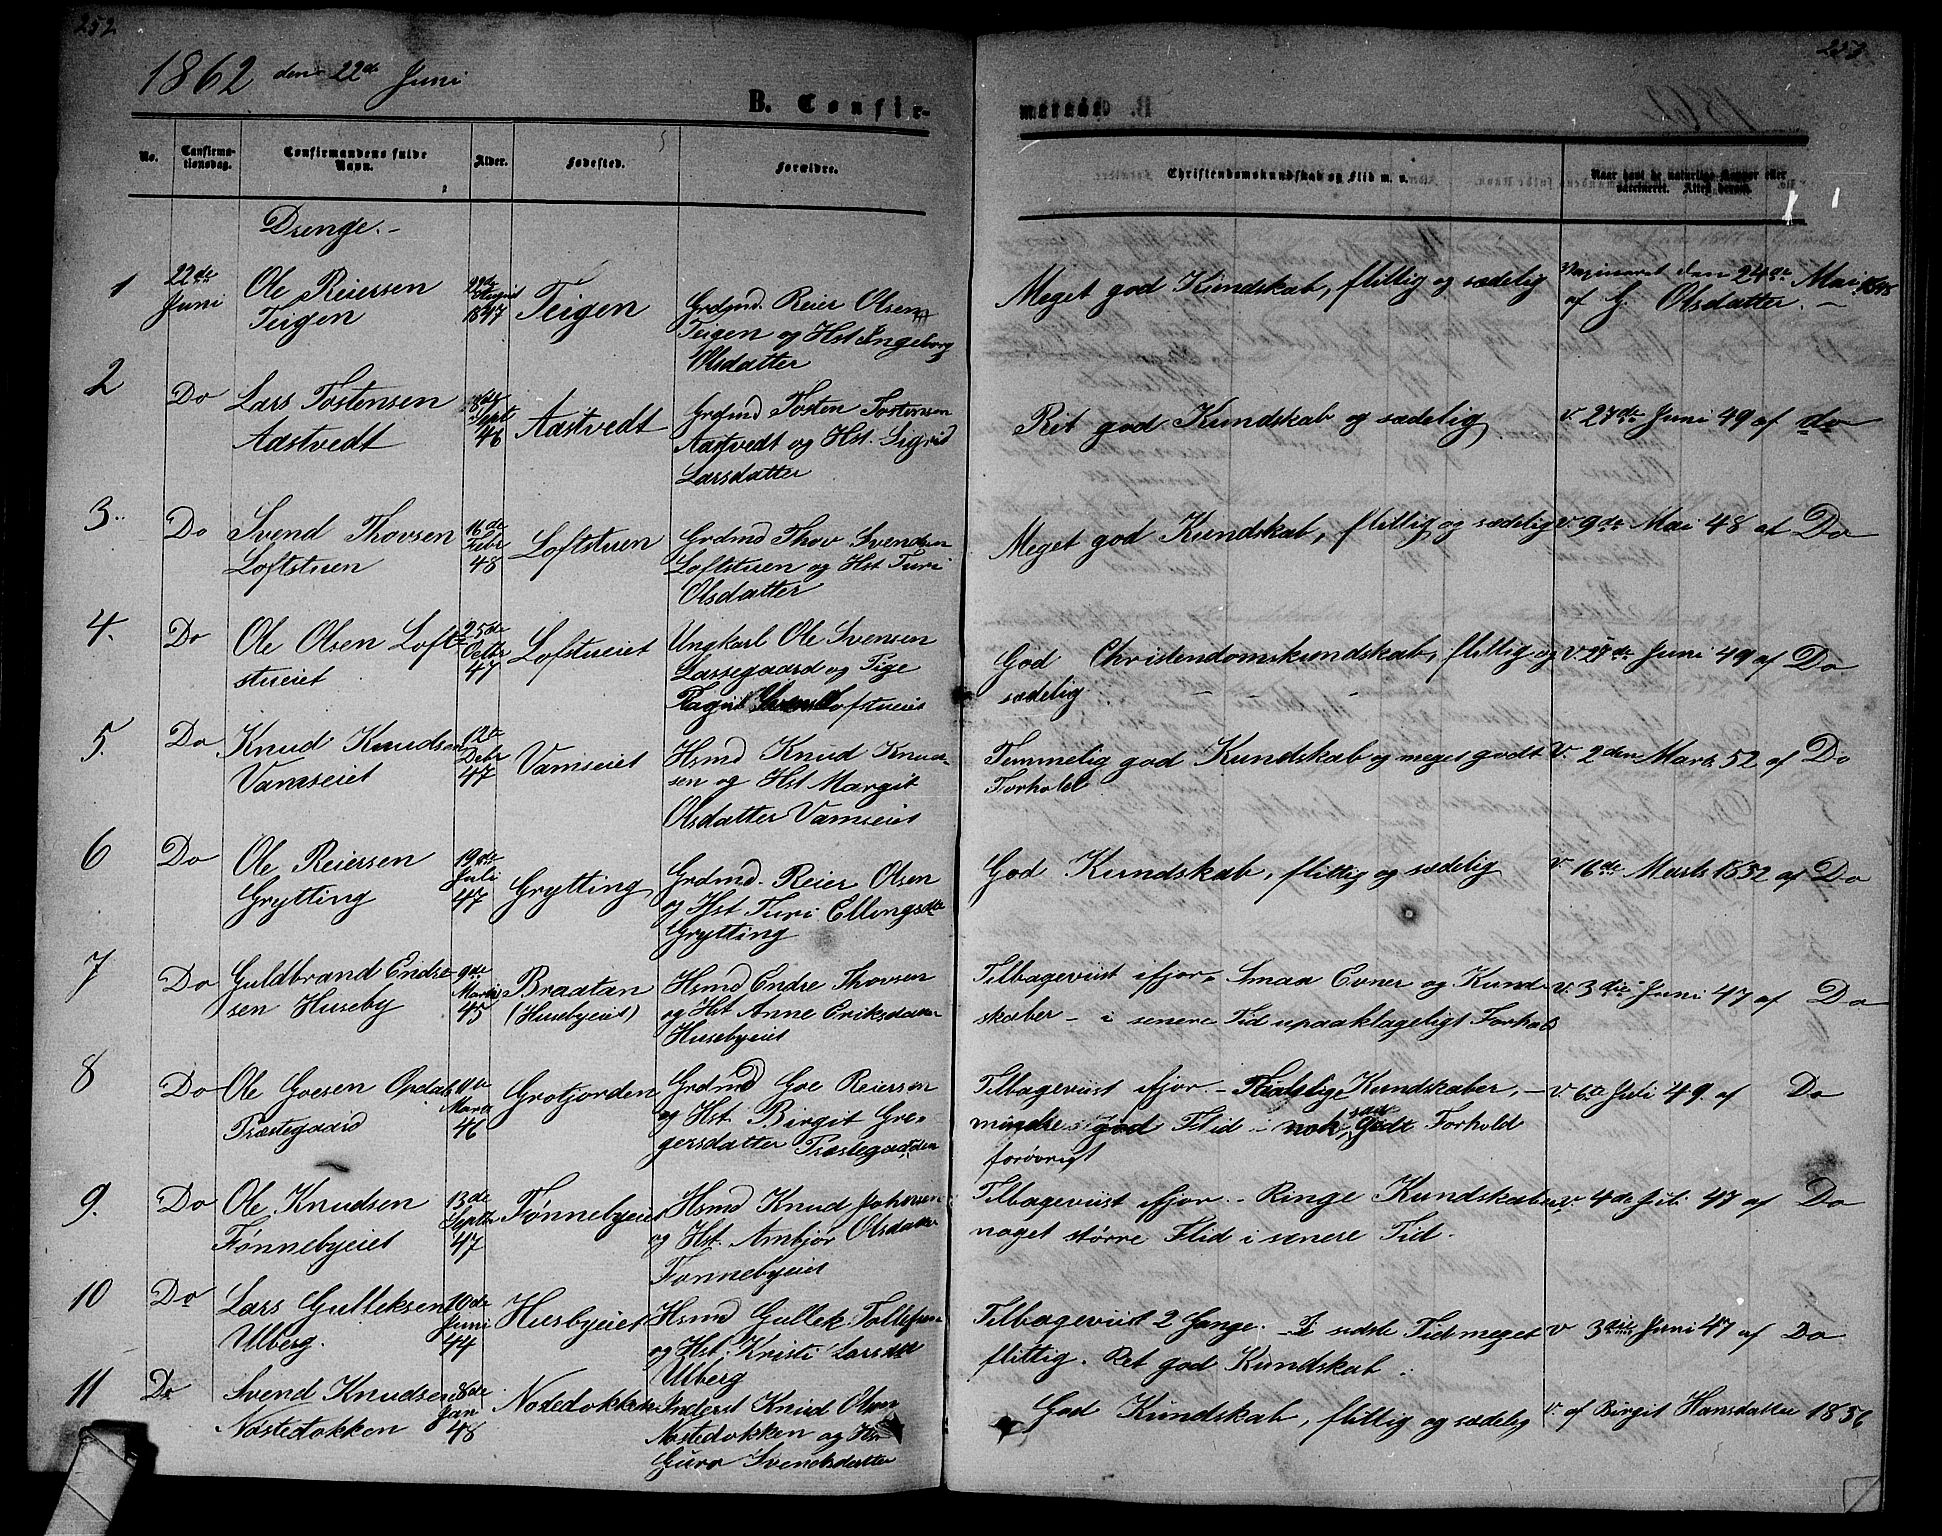 252
1862 den 22de Juni
B. Confir-
No.
Confirma-
tionsdag.
Confirmandens fulde
Navn.
Alder.
Fødested.
Forældre.
Drenge.-
1
22de
Juni
Ole Reiersen
Teigen
22de
August
1847
Teigen
Grdmd. Reier Olsen
Teigen og Hst Ingeborg
Olsdatter
2
Do
Lars Tostensen
Aastvedt
Septr
46
Aastvedt
Grdmd Tosten Tostensen
Aastvedt og Hst. Sigrid
Larsdatter
3.
Do
Svend Thovsen
Loftstuen
16de
Febr
48
Loftstuen
Grdmd Thov Svendsen
Loftstuen og Hst Turi
Olsdatter
4.
Do
Ole Olsen Loft-
stueiet
25de
Octbr
47
Lofstueiet
Ungkarl Ole Svensen
Lassegaard og Pige
Lofstueiet
5.
Do
Knud Knudsen
Vamseiet
12te
Debr
47
Vamseiet
Hsmd Knud Knud-
sen og Hst Margit
Olsdatter Vamseiet
6
Do
Ole Reiersen
Grytting
19de
Juli
47
Grytting
Grdmd. Reier Olsen
og Hst Turi Ellingsdtr
Grytting
7
Do
Guldbrand Endre-
sen Huseby
9de
Marts
45
Braatan
(Husebyeiet)
Hsmd Endre Thovsen
og Hst Anne Eriksdatter
Husebyeiet
8
Do
Ole Goesen Opdal
Præstegaard
Marts
46
Grotjorden
Grdmd Goe Reiersen
og Hst. Birgit Gre-
gersdatter Præstegaarden
9.
Do
Ole Knudsen
Tønnebyeiet
13de
Septbr
47
Tønnebyeiet
Hsmd Knud Johnsen
og Hst. Ambjør Olsdatter
Tønnebyeiet
10
Do
Lars Gulleksen
Ulberg.
10de
Juni
44
Husbyeiet
Hsmd Gullek Tollefsen
og Hst. Kristi Larsdtr
Ulberg
11
Do
Svend Knudsen
Næstedokken
8de
Jan
48
Næstedokken
Inderst Knud Olsen
Næstedokken og Hst
Guro Svendsdatter
253
B. marede
Christendomskundskab og Flid m. v.
Naar havt de naturlige Kopper eller
vaccineret. Attest derom.
Meget god Kundskab, flittig og sædelig
Vaccineret den 24de Mai 1848
af G. Olsdatter. -
Ret god Kundskab og sædelig
v. 27de Juni 49 af do
Meget god Kundskab, flittig og sædelig
v. 9de Mai 48 af Do
God Christendomskundskab, flittig og
sædelig.
v. 27de Juni 49 af Do
Temmelig god Kundskab og meget godt
Forhold
v. 2den Marts 52 af Do
God Kundskab, flittig og sædelig
v. 16de Marts 1852 af Do
Tilbageviist ifjor. Smaa Evner og Kund-
skaber - i senere Tid upaaklageligt Forhold
v. 3die Juni 47 af Do
Tilbageviist ifjor. - Kundskaber, -
mindre god Flid - nok saa godt Forhold
forøvrigt
v. 6te Juli 49. af Do
Tilbageviist ifjor. - Ringe Kundskaber,
noget større Flid i senere Tid.
v. 4de Juli 47 af Do
Tilbageviist 2 Gange. - I sidste Tid meget
flittig. Ret god Kundskab.
v 3die Juni 47 af Do
God Kundskab, flittig og sædelig
v. af Birgit Hansdatter 1856